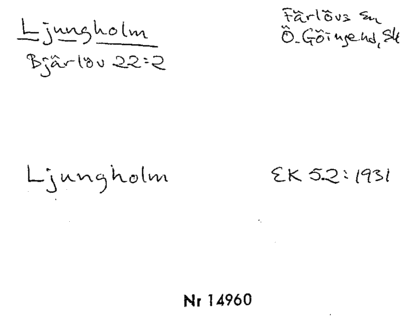 Ljungholm
Bjärlöv 22:2
Färlövs sn
Ö. Göinge hd, Sk
Ljungholm
EK 52:1931
Nr 14960